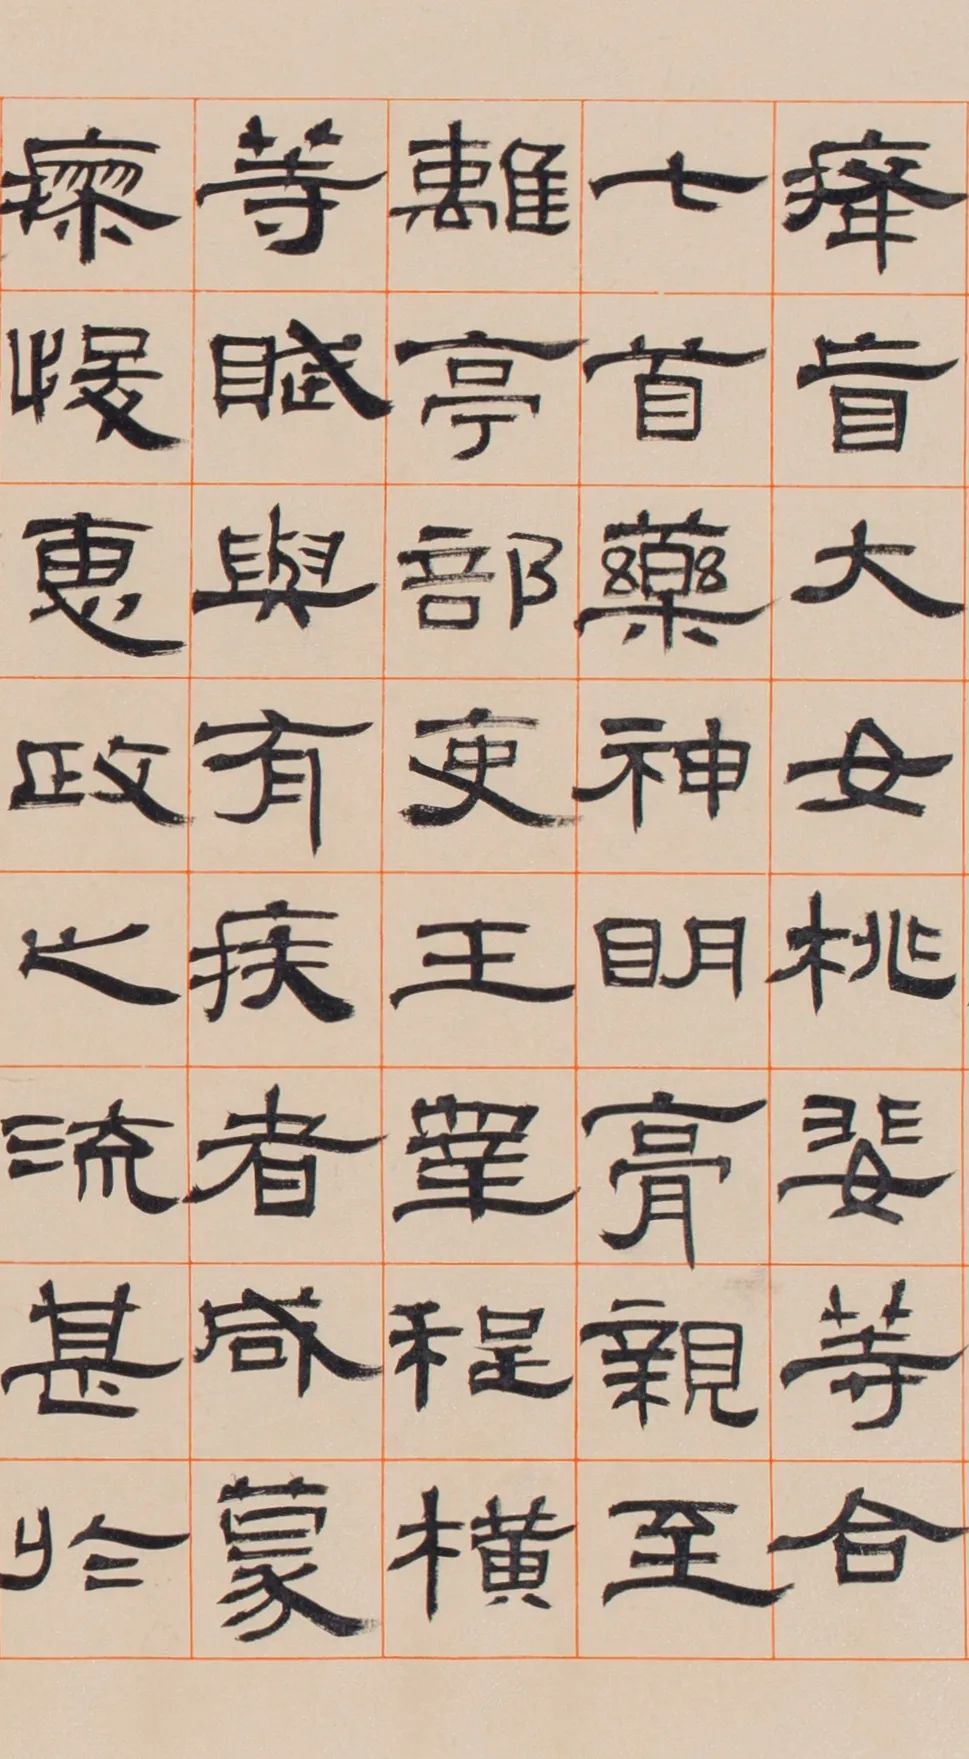 㾮盲大女桃婓等合
七首藥神明膏親至
離亭部吏王睾程橫
等賦與有疾者咸蒙
瘳悛惠政之流甚於